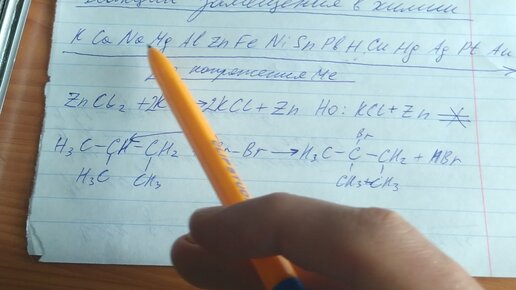 замещения в химии
K Ca Na Mg Al Zn Fe Ni Sn Pb H Cu Hg Ag Pt Au
напряжения Me
ZnCl₂ + 2K → 2KCl + Zn Но: KCl + Zn
Br
H₃C – CH – CH₂ Br → H₃C – C – CH₂ + HBr
H₃C CH₃ CH₃ CH₃